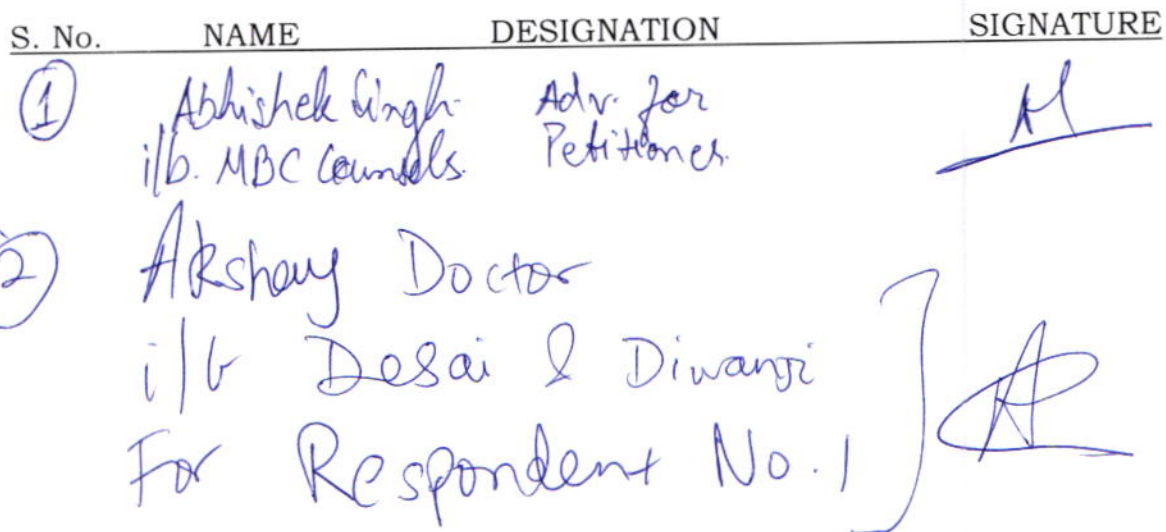 S. No. NAME DESIGNATION SIGNATURE
1 Abhishek Singh Adv. for
i/b. MBC Counsels. Petitioner.
2 Akshay Doctor
i/b Desai & Diwanji
For Respondent No. 1